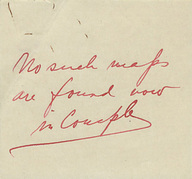 No such maps
are found now
in Couple